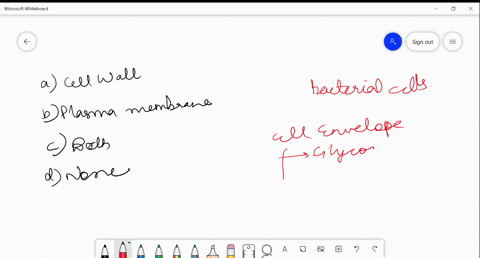 Microsoft Whiteboard
Sign out
a) Cell Wall
b) Plasma membrane
c) Both
d) None
bacterial cells.
Cell Envelope
→ Glyco